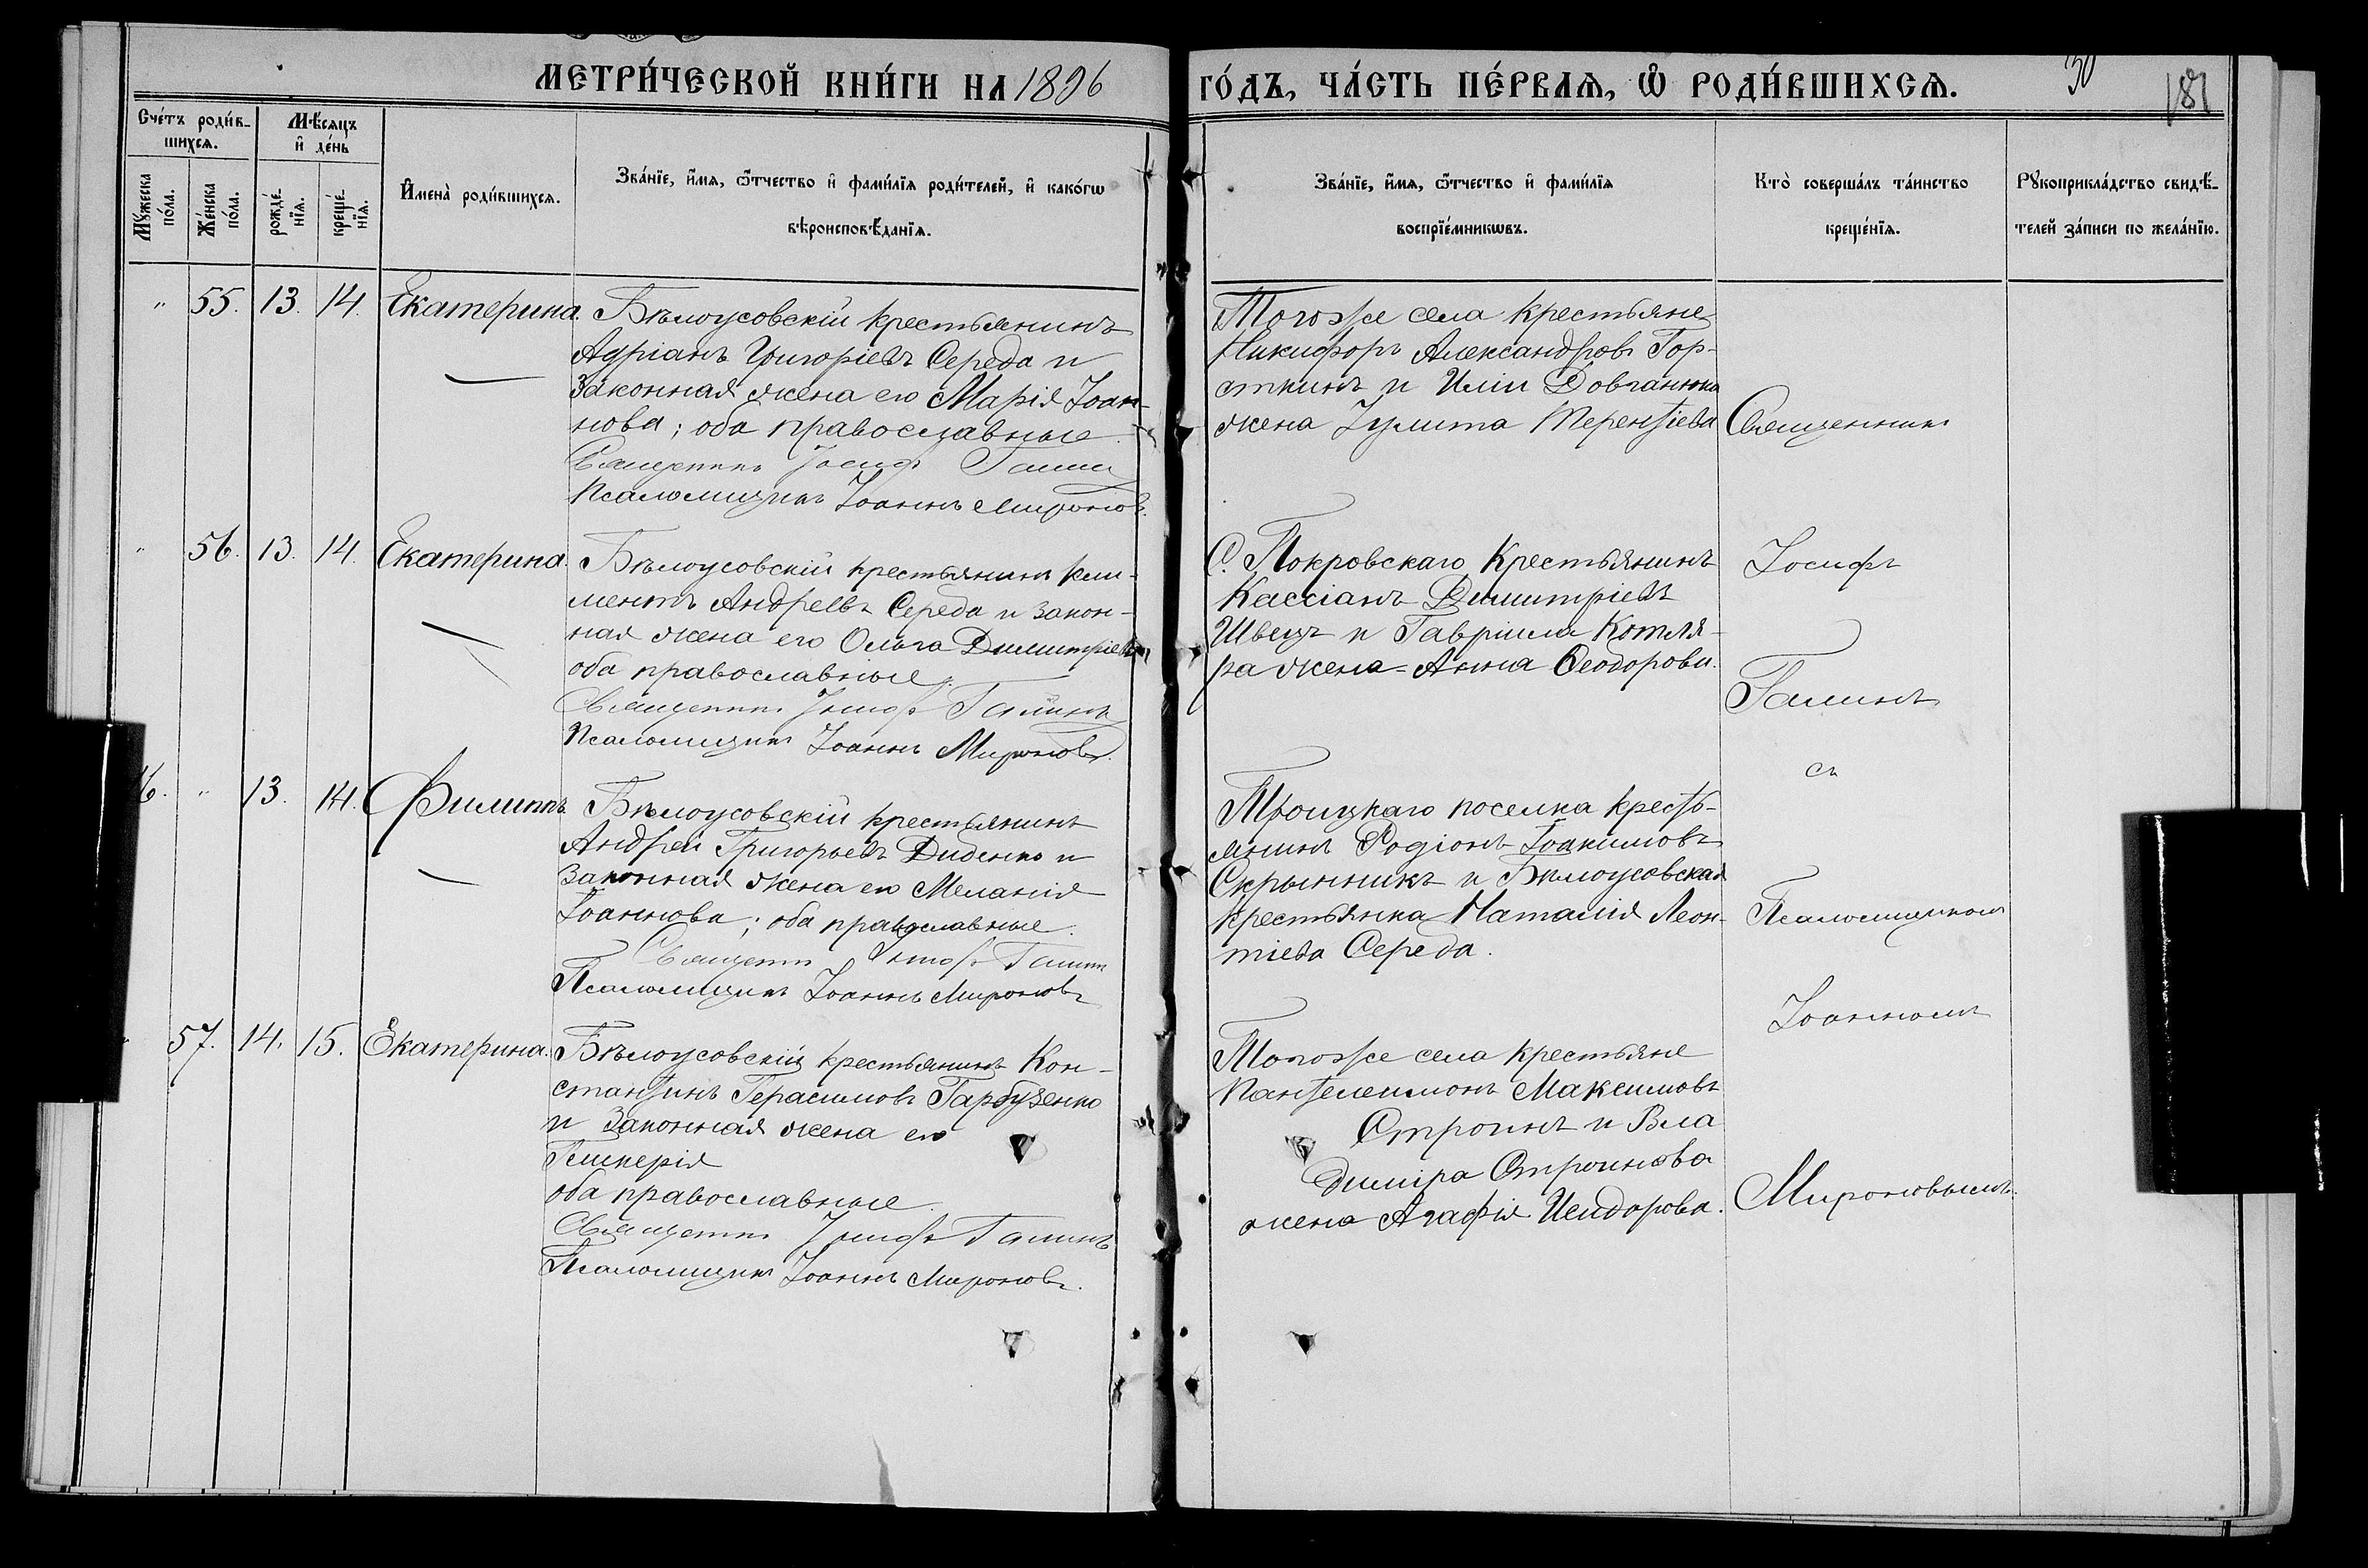 МЕТРИ́ЧЕСКОЙ КНИ́ГИ НА 1896 ГО́ДЪ, ЧА́СТЬ ПЕ́РВАѦ, Ѽ РОДИ́ВШИХСѦ.
30
181
Сче́тъ роди́в-
шихсѧ.
Мѣ́сѧцъ
и҆ де́нь
Мꙋ́жеска
по́ла.
Же́нска
по́ла.
рожде́-
нїѧ.
креще́-
нїѧ.
И҆мена̀ роди́вшихсѧ.
Зва́нїе, и҆́мѧ, ѻ҆́тчество и҆ фами́лїѧ роди́телей, и҆ како́гѡ
вѣроисповѣ́данїѧ.
Зва́нїе, и҆́мѧ, ѻ҆́тчество и҆ фами́лїѧ
воспрїе́мникѡвъ.
Кто̀ соверша́лъ та́инство
креще́нїѧ.
Рꙋкоприкла́дство свидѣ́-
телей за́писи по жела́нїю.
" 55. 13. 14. Екатерина.
Бѣлоусовскій крестьянинъ
Адріанъ Григоріевъ Середа и
законная жена его Марія Іоан-
нова; оба православные.
Священникъ Іосифъ Галинъ
Псаломщикъ Іоаннъ Мироновъ.
Тогоже села крестьяне
Никифоръ Александровъ Гор-
сткинъ и Иліи Довганюка
жена Іулита Терентіева
" 56. 13. 14. Екатерина.
Бѣлоусовскій крестьянинъ Кли-
ментъ Андреевъ Середа и закон-
ная жена его Ольга Димитріева,
оба православные.
Священникъ Іосифъ Галинъ
Псаломщикъ Іоаннъ Мироновъ.
С. Покровскаго крестьянинъ
Кассіанъ Димитріевъ
Швецъ и Гавріила Котля-
ра жена Анна Ѳеодорова.
6. " 13. 14. Филиппъ.
Бѣлоусовскій крестьянинъ
Андрей Григорьевъ Диденко и
законная жена его Меланія
Іоаннова; оба православные.
Священникъ Іосифъ Галинъ
Псаломщикъ Іоаннъ Мироновъ
Троицкаго поселка кресть-
янинъ Родіонъ Іоакимовъ
Скрынникъ и Бѣлоусовская
крестьянка Наталія Леон-
тіева Середа.
57. 14. 15. Екатерина.
Бѣлоусовскій крестьянинъ Кон-
стантинъ Герасимовъ Гарбузенко
и законная жена его
Гликерія
оба православные.
Священникъ Іосифъ Галинъ
Псаломщикъ Іоаннъ Мироновъ.
Тогоже села крестьяне
Пантелеимонъ Максимовъ
Строинъ и Вла
диміра Строинова
жена Агафія Исидорова.
Священникъ
Іосифъ
Галинъ
съ
Псаломщикомъ
Іоанномъ
Мироновымъ.